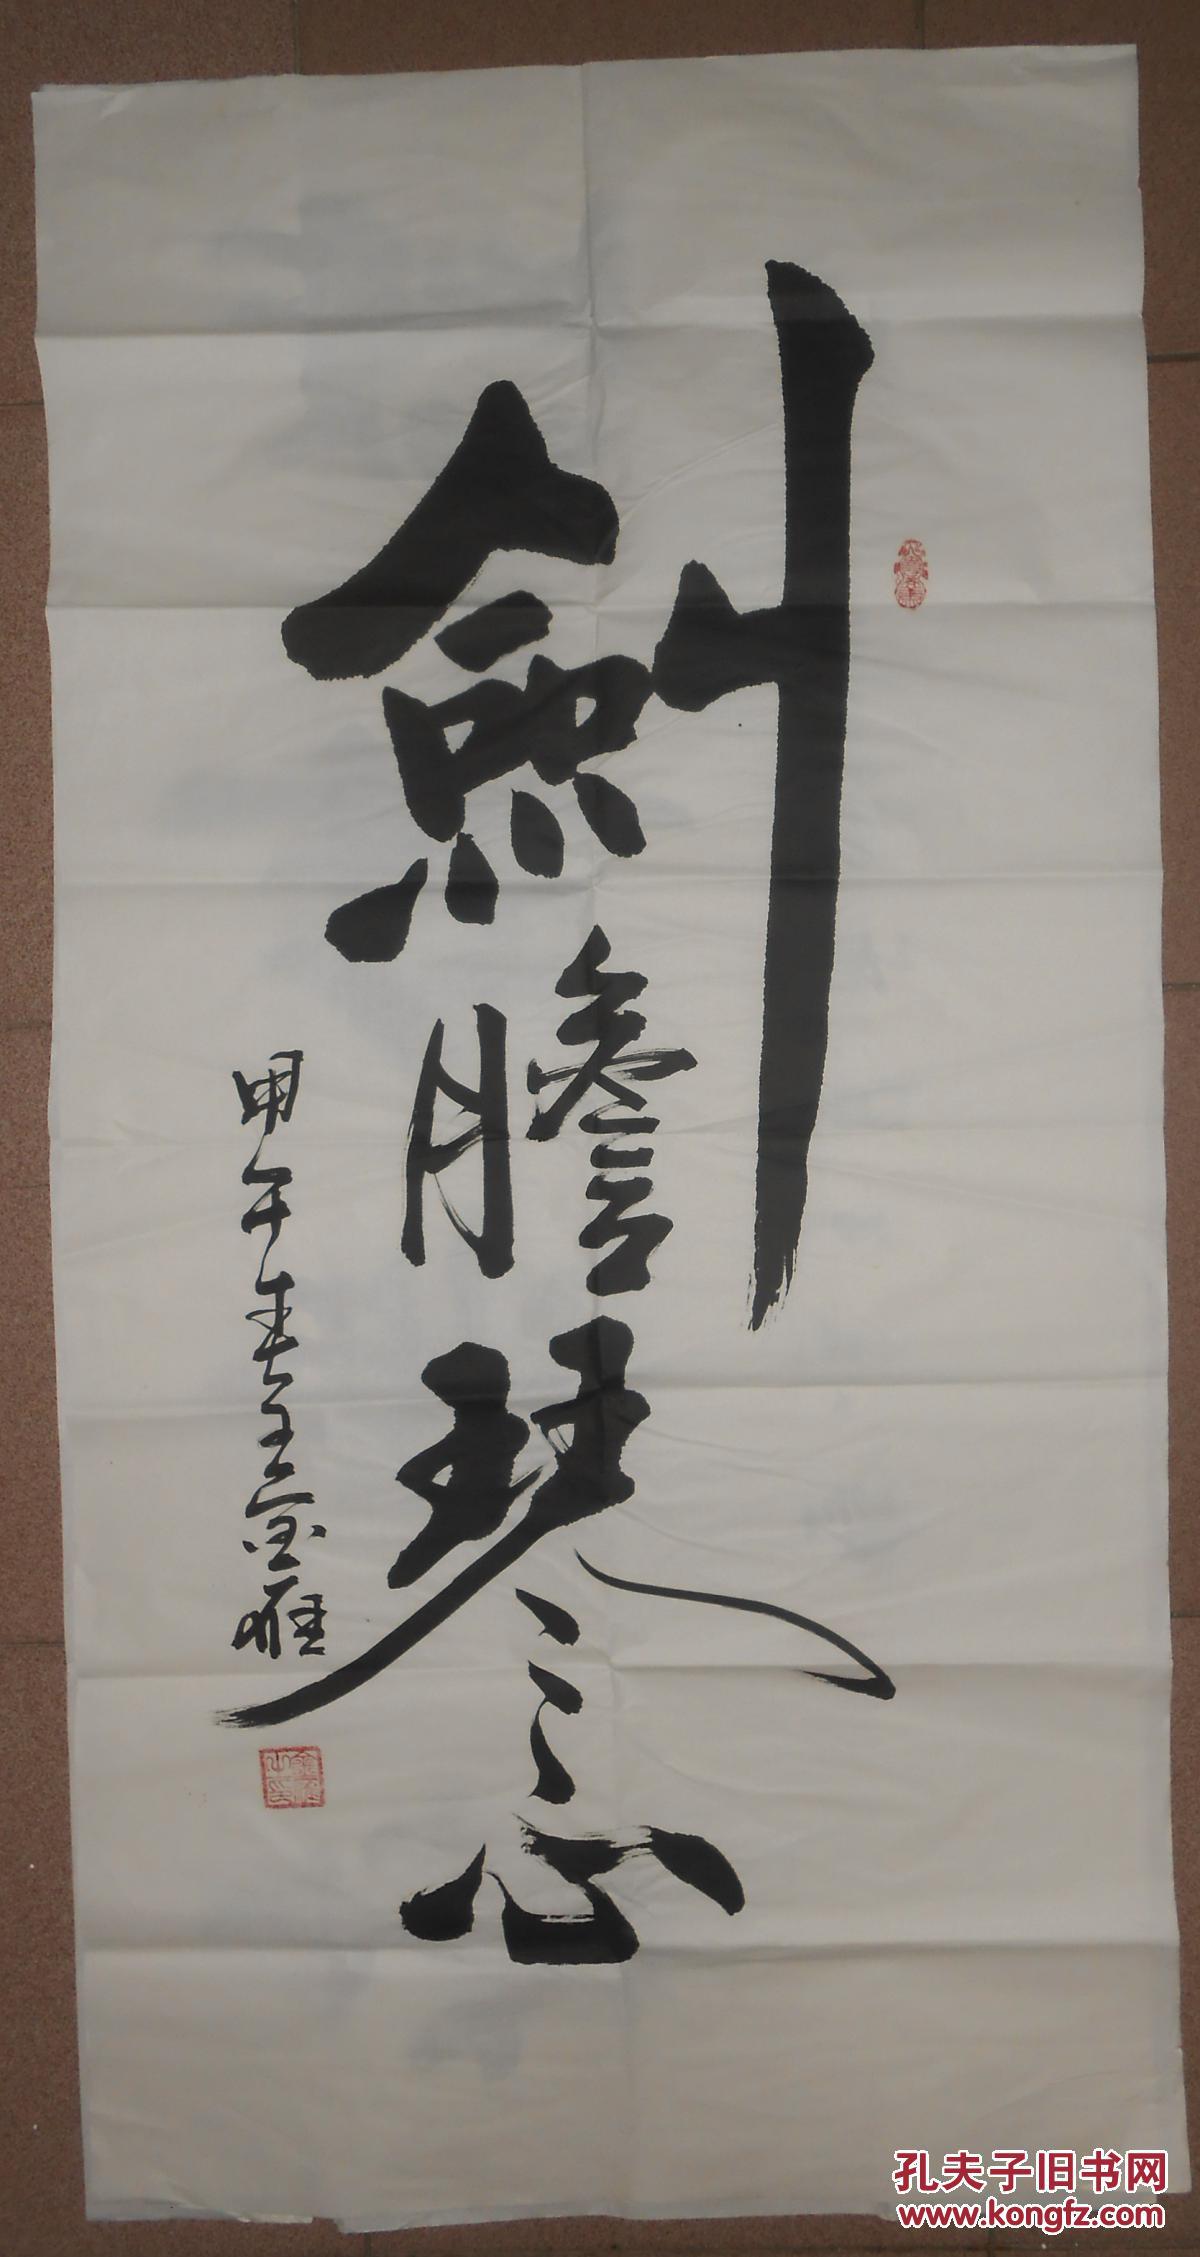 劍膽琴心
甲午春王金雁
孔夫子旧书网
www.kongfz.com